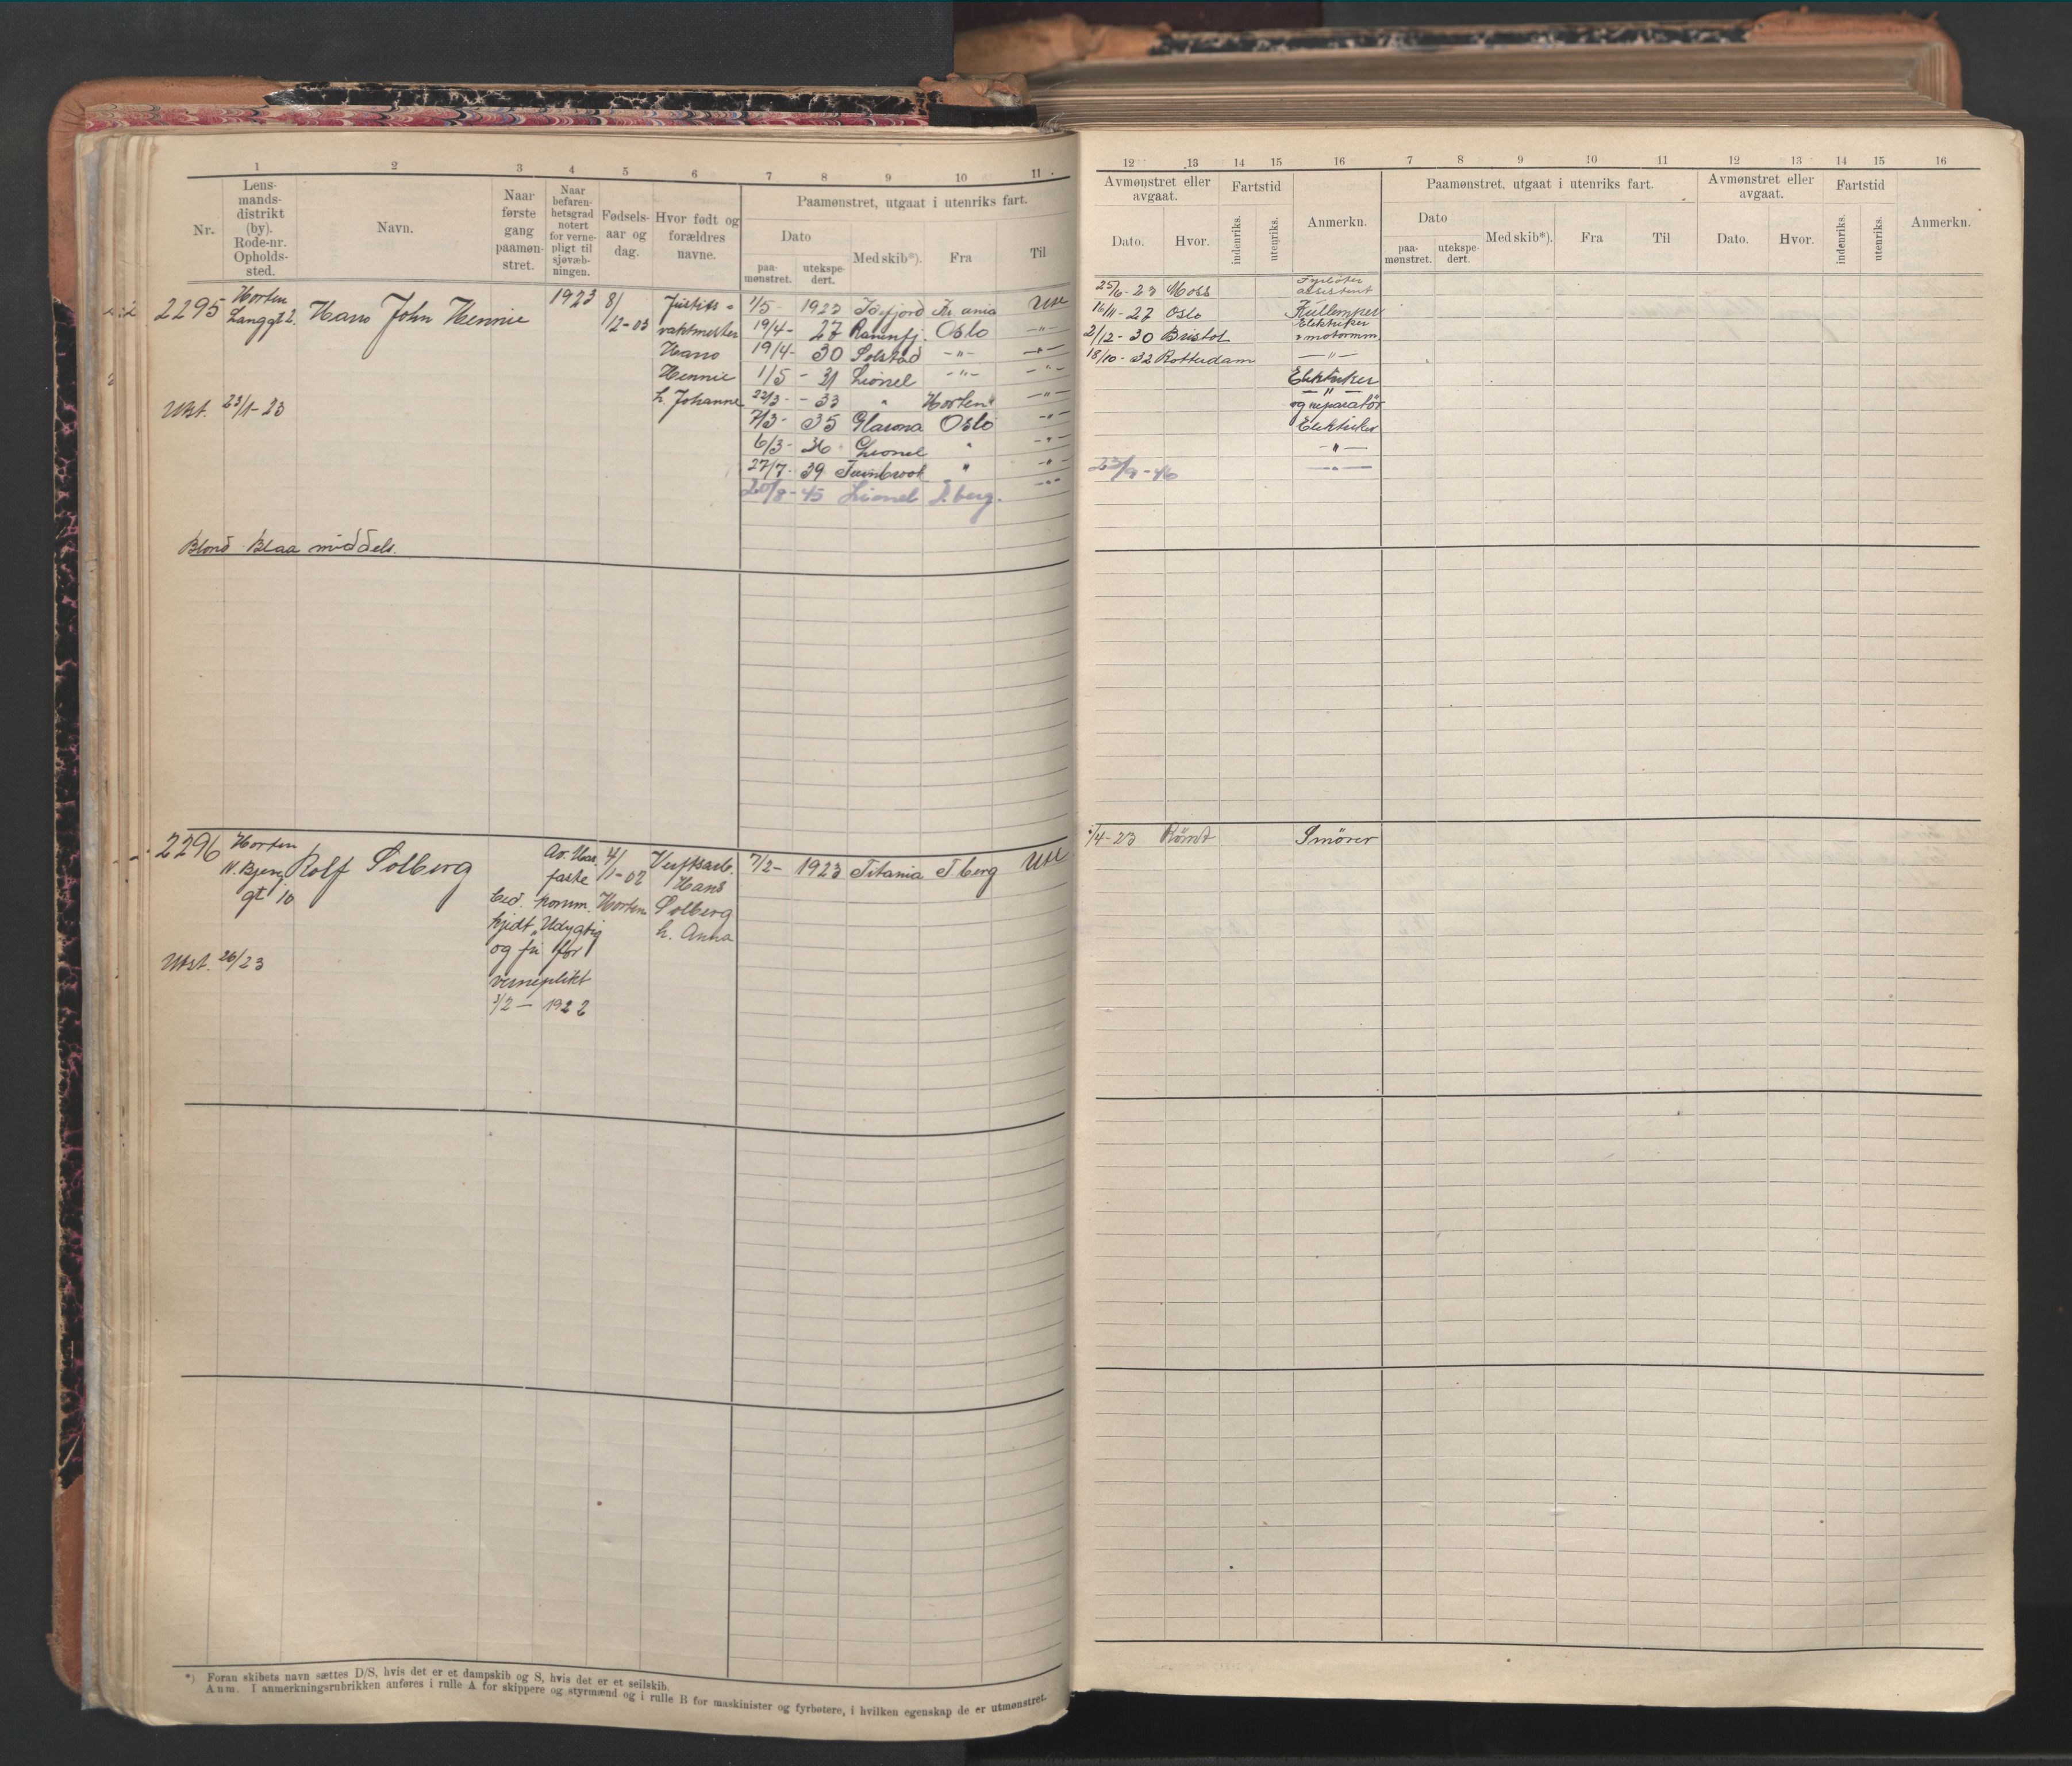 1 2 3 4 5 6 7 8 9 10 11
Nr.
Lens-
mands-
distrikt
(by).
Rode-nr.
Opholds-
sted.
Navn.
Naar
første
gang
paamøn-
stret.
Naar
befaren-
hetsgrad
notert
for verne-
pligt til
sjøvæb-
ningen.
Fødsels-
aar og
dag.
Hvor født og
forældres
navne.
Paamønstret, utgaat i utenriks fart.
Dato
paa-
mønstret.
utekspe-
dert.
Med skib*).
Fra
Til
2295 Horten
Langgt 2. Hans John Hennie 1923 8/
12-03
Justits-
vaktmester
Hans
Hennie
h. Johanne
1/5 - 1923 Kr. ania Ute
19/4 - 27 Ranenfj. Oslo -"-
19/4 - 30 Solstad -"- -"-
1/5 - 31 Lionel -"- -"-
22/3 - - 33 " Horten -"-
7/3 - 35 Glarona Oslo -"-
6/3 - 36 Lionel " -"-
27/7 - 39 "  -"-
20/8 - 45 Lionel T.berg. -"-
Utst. 23/1-23
Blond Blaa middels.
2296 Horten
N. Bjerg
gt 10
Rolf Solberg
faste
komm.
kjedt „Udygtig
og fri for
verneplikt
3/2 - 1922
4/
1-02
Horten
Verftsarb.
Hans
Solberg
h. Anna
7/2 - 1923 Titania T.berg Ute
Utst. 26/23
*) Foran skibets navn sættes D/S, hvis det er et dampskib og S, hvis det er et seilskib.
Anm. I anmerkningsrubrikken anføres i rulle A for skippere og styrmænd og i rulle B for maskinister og fyrbøtere, i hvilken egenskap de er utmønstret.
12 13 14 15 16 7 8 9 10 11 12 13 14 15 16
Avmønstret eller
avgaat.
Dato. Hvor.
Fartstid
indenriks.
utenriks.
Anmerkn.
Paamønstret, utgaat i utenriks fart.
Dato
paa-
mønstret.
utekspe-
dert.
Med skib*).
Fra
Til
Avmønstret eller
avgaat.
Dato. Hvor.
Fartstid
indenriks.
utenriks.
Anmerkn.
25/6 - 23 Moss Fyrbøter
assistent
16/11 - 27 Oslo Kullemper
2/12 - 30 Bristol Elektriker
& motormm.
18/10 - 32 Rotterdam -"-
Elektriker
-"-
og reparatör
Elektriker
-"-
23/9 - 46 -"-
/4 - 23 Römt Smörer